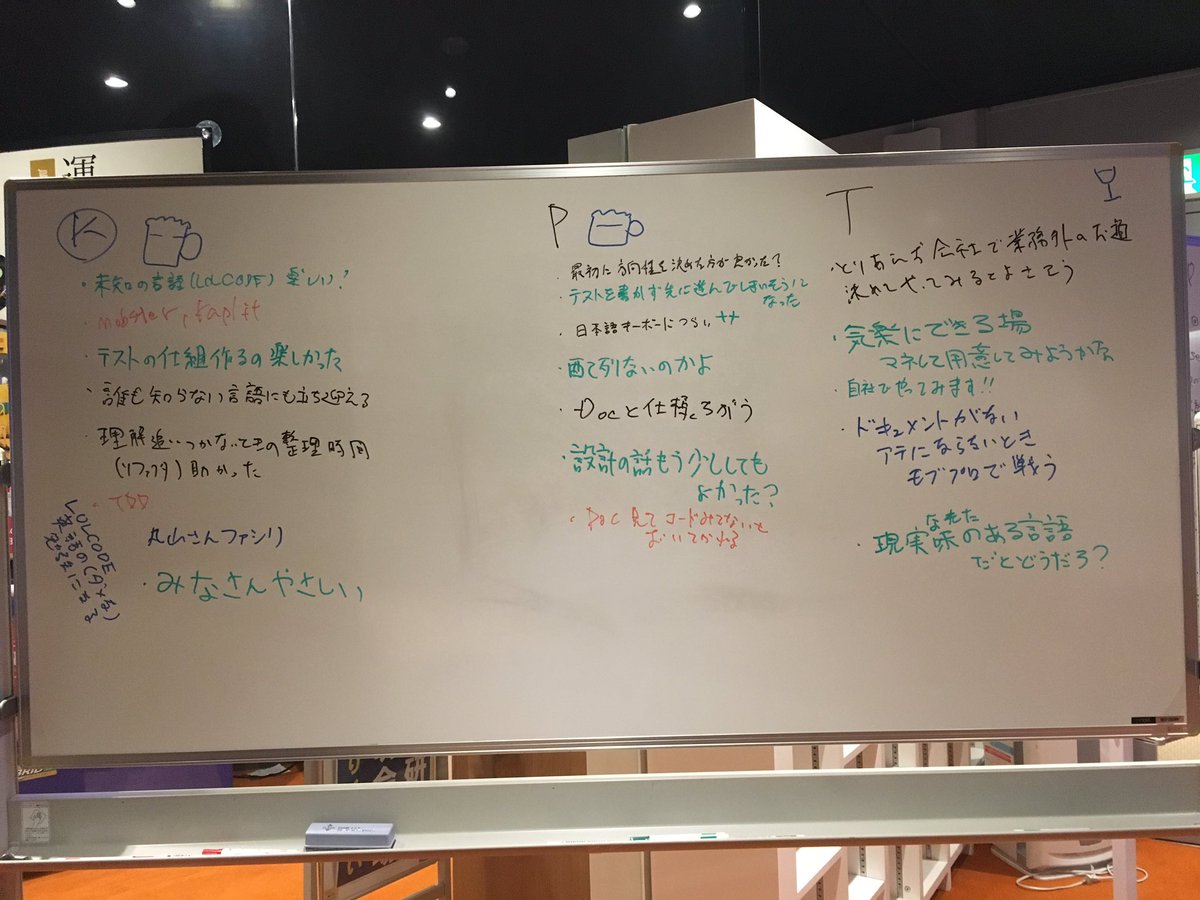 運
K
・未知の言語(LOLCODE) 楽しい!
・mobster, 
・テストの仕組作るの楽しかった
・誰も知らない言語にも立ち迎える
・理解追いつかなくてその整理時間
(リファクタ)助かった
・TDD
LOLCODE
丸山さんファシリ
・みなさんやさしい
P
・最初に方向性を決めた方が良かった?
・テストを書かず先に進んでしまいそうに
なった
・日本語キーボードにつらい
・酉て列ないのかよ
・Docと仕様ちがう
・設計の話もう少ししても
よかった?
・Doc 見て コードみてないと
おいてかれる
T
・とりあえず会社で業務外の
決めてやってみるとよさそう
・気楽にできる場
マネして用意してみようかな
・自社でやってみます!!
・ドキュメントがない
アテにならないとき
モブプロで戦う
・現実味のある言語
なれた
だとどうだろ?